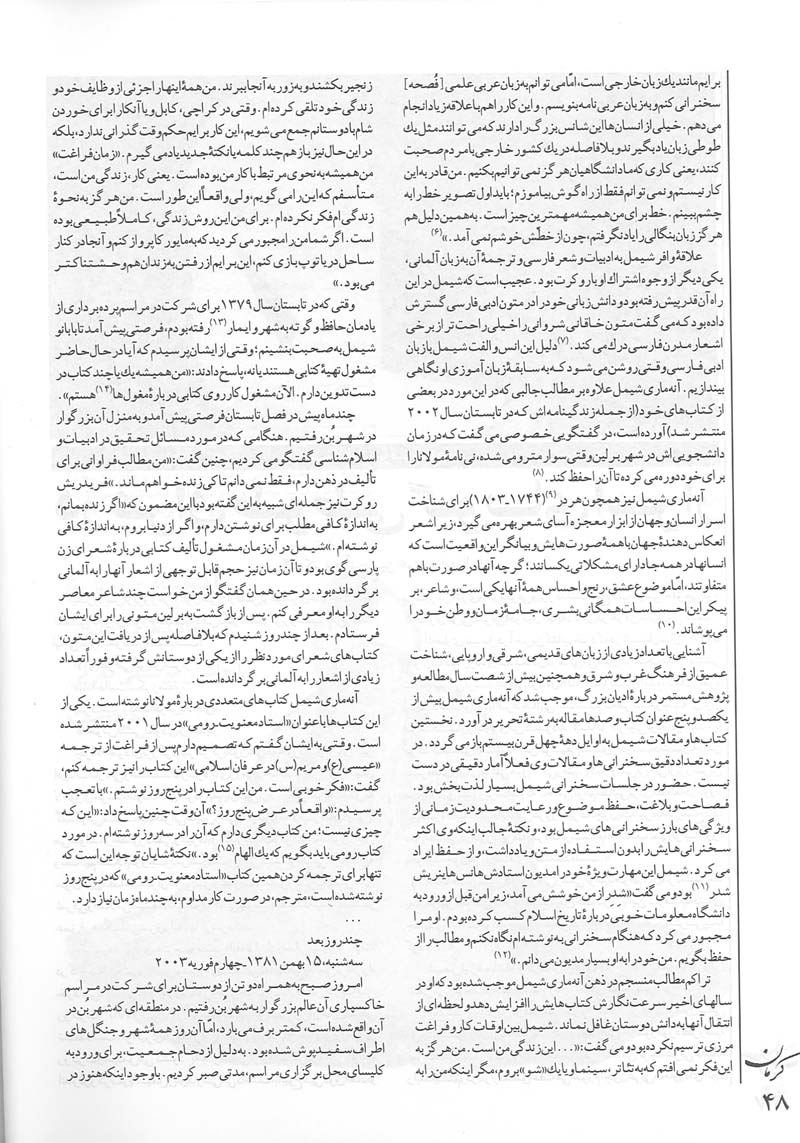 برایم مانند یك زبان خارجی است، امّا می توانم به زبان عربی علمی [فُصحه]
سخنرانی کنم و به زبان عربی نامه بنویسم. و این کار را هم با علاقه زیاد انجام
می دهم. خیلی از انسان ها این شانس بزرگ را دارند که می توانند مثل یك
طوطی زبان یاد بگیرند و بلافاصله در یك کشور خارجی با مردم صحبت
کنند، یعنی کاری که ما دانشگاهیان هرگز نمی توانیم بکنیم. من قادر به این
کار نیستم و نمی توانم فقط از راه گوش بیاموزم؛ باید اول تصویر خط را به
چشم ببینم. خط برای من همیشه مهمترین چیز است. به همین دلیل هم
هرگز زبان بنگالی را یاد نگرفتم، چون از خطّش خوشم نمی آمد.»(۶)
علاقهٔ وافر شیمل به ادبیات و شعر فارسی و ترجمهٔ آن به زبان آلمانی،
یکی دیگر از وجوه اشتراك او با روکرت بود. عجیب است که شیمل در این
راه آن قدر پیش رفته بود و دانش زبانی خود را در متون ادبی فارسی گسترش
داده بود که می گفت متون خاقانی شروانی را خیلی راحت تر از برخی
اشعار مدرن فارسی درك می کند.(۷) دلیل این انس و الفت شیمل با زبان
ادبی فارسی وقتی روشن می شود که به سابقهٔ زبان آموزی او نگاهی
بیندازیم. آنه ماری شیمل علاوه بر مطالب جالبی که در این مورد در بعضی
از کتاب های خود (از جمله زندگینامه اش که در تابستان سال ۲۰۰۲
منتشر شد) آورده است، در گفتگویی خصوصی می گفت که در زمان
دانشجویی اش در شهر برلین وقتی سوار مترو می شده، نی نامهٔ مولانا را
برای خود دوره می کرده تا آن را حفظ کند.(۸)
آنه ماری شیمل نیز همچون هردر(۹) (۱۷۴۴ـ۱۸۰۳) برای شناخت
اسرار انسان و جهان از ابزار معجزه آسای شعر بهره می گیرد، زیرا شعر
انعکاس دهندهٔ جهان با همهٔ صورت هایش و بیانگر این واقعیت است که
انسانها در همه جا دارای مشکلاتی یکسانند؛ گرچه آنها در صورت با هم
متفاوتند، امّا موضوع عشق، رنج و احساس همهٔ آنها یکی است، و شاعر، بر
پیکر این احساسات همگانی بشری، جامهٔ زمان و وطن خود را
می پوشاند.(۱۰)
آشنایی با تعداد زیادی از زبان های قدیمی، شرقی و اروپایی، شناخت
عمیق از فرهنگ غرب و شرق و همچنین بیش از شصت سال مطالعه و
پژوهش مستمر دربارهٔ ادیان بزرگ، موجب شد که آنه ماری شیمل بیش از
یکصد و پنج عنوان کتاب و صدها مقاله به رشتهٔ تحریر درآورد. نخستین
کتاب ها و مقالات شیمل به اوایل دههٔ چهل قرن بیستم باز می گردد. در
مورد تعداد دقیق سخنرانی ها و مقالات وی فعلاً آمار دقیقی در دست
نیست. حضور در جلسات سخنرانی شیمل بسیار لذت بخش بود.
فصاحت و بلاغت، حفظ موضوع و رعایت محدودیت زمانی از
ویژگی های بارز سخنرانی های شیمل بود، و نکتهٔ جالب اینکه وی اکثر
سخنرانی هایش را بدون استفاده از متن و یادداشت، و از حفظ ایراد
می کرد. شیمل این مهارت ویژهٔ خود را مدیون استادش هانس هاینریش
شدر(۱۱) بود و می گفت «شدِر از من خوشش می آمد، زیرا من قبل از ورود به
دانشگاه معلومات خوبی دربارهٔ تاریخ اسلام کسب کرده بودم. او مرا
مجبور می کرد که هنگام سخنرانی به نوشته ام نگاه نکنم و مطالب را از
حفظ بگویم. من خود را به او بسیار مدیون می دانم.»(۱۲)
تراکم مطالب منسجم در ذهن آنه ماری شیمل موجب شده بود که او در
سالهای اخیر سرعت نگارش کتاب هایش را افزایش دهد و لحظه ای از
انتقال آنها به دانش دوستان غافل نماند. شیمل بین اوقات کار و فراغت
مرزی ترسیم نکرده بود و می گفت: «... این زندگی من است. من هرگز به
این فکر نمی افتم که به تئاتر، سینما و یا یك «شو» بروم، مگر اینکه من را به
زنجیر بکشند و به زور به آنجا ببرند. من همهٔ اینها را جزئی از وظایف خود و
زندگی خود تلقی کرده ام. وقتی در کراچی، کابل و یا آنکارا برای خوردن
شام با دوستانم جمع می شویم، این کار برایم حکم وقت گذرانی ندارد، بلکه
در این حال نیز باز هم چند کلمه یا نکتهٔ جدید یاد می گیرم. «زمان فراغت»
من همیشه به نحوی مرتبط با کار من بوده است. یعنی کار، زندگی من است،
متأسفم که این را می گویم، ولی واقعاً این طور است. من هرگز به نحوهٔ
زندگی ام فکر نکرده ام. برای من این روش زندگی، کاملاً طبیعی بوده
است. اگر شما من را مجبور می کردید که به مایورکا پرواز کنم و آنجا در کنار
ساحل دریا توپ بازی کنم، این برایم از رفتن به زندان هم وحشتناکتر
می بود.»
وقتی که در تابستان سال ۱۳۷۹ برای شرکت در مراسم پرده برداری از
یادمان حافظ و گوته به شهر وایمار(۱۳) رفته بودم، فرصتی پیش آمد تا با بانو
شیمل به صحبت بنشینم؛ وقتی از ایشان پرسیدم که آیا در حال حاضر
مشغول تهیهٔ کتابی هستند یا نه، پاسخ دادند: «من همیشه یك یا چند کتاب در
دست تدوین دارم. الآن مشغول کار روی کتابی دربارهٔ مغول ها(۱۴) هستم».
چند ماه پیش در فصل تابستان فرصتی پیش آمد و به منزل آن بزرگوار
در شهر بُن رفتیم. هنگامی که در مورد مسائل تحقیق در ادبیات و
اسلام شناسی گفتگو می کردیم، چنین گفت: «من مطالب فراوانی برای
تألیف در ذهن دارم، فقط نمی دانم تا کی زنده خواهم ماند.» فریدریش
روکرت نیز جمله ای شبیه به این گفته بود با این مضمون که «اگر زنده بمانم،
به اندازهٔ کافی مطلب برای نوشتن دارم، و اگر از دنیا بروم، به اندازهٔ کافی
نوشته ام.» شیمل در آن زمان مشغول تألیف کتابی دربارهٔ شعرای زن
پارسی گوی بود و تا آن زمان نیز حجم قابل توجهی از اشعار آنها را به آلمانی
برگردانده بود. در حین همان گفتگو از من خواست چند شاعر معاصر
دیگر را به او معرفی کنم. پس از بازگشت به برلین متونی را برای ایشان
فرستادم. بعد از چند روز شنیدم که بلافاصله پس از دریافت این متون،
کتاب های شعرای مورد نظر را از یکی از دوستانش گرفته و فوراً تعداد
زیادی از اشعار را به آلمانی برگردانده است.
آنه ماری شیمل کتاب های متعددی دربارهٔ مولانا نوشته است. یکی از
این کتاب ها با عنوان «استاد معنویت ـ رومی» در سال ۲۰۰۱ منتشر شده
است. وقتی به ایشان گفتم که تصمیم دارم پس از فراغت از ترجمه
«عیسی(ع) و مریم(س) در عرفان اسلامی» این کتاب را نیز ترجمه کنم،
گفت: «فکر خوبی است. من این کتاب را در پنج روز نوشتم.» با تعجب
پرسیدم: «واقعاً در عرض پنج روز؟» آن وقت چنین پاسخ داد: «این که
چیزی نیست؛ من کتاب دیگری دارم که آن را در سه روز نوشته ام. در مورد
کتاب رومی باید بگویم که یك الهام(۱۵) بود.» نکتهٔ شایان توجه این است که
تنها برای ترجمه کردن همین کتاب «استاد معنویت ـ رومی» که در پنج روز
نوشته شده است، مترجم، در صورت کار مداوم، به چند ماه زمان نیاز دارد.
...
چند روز بعد
سه شنبه، ۱۵ بهمن ۱۳۸۱ ـ چهارم فوریه ۲۰۰۳
امروز صبح به همراه دو تن از دوستان برای شرکت در مراسم
خاکسپاری آن عالم بزرگوار به شهر بُن رفتیم. در منطقه ای که شهر بُن در
آن واقع شده است، کمتر برف می بارد، امّا آن روز همهٔ شهر و جنگل های
اطراف سفیدپوش شده بود. به دلیل ازدحام جمعیت، برای ورود به
کلیسای محل برگزاری مراسم، مدتی صبر کردیم. با وجود اینکه هنوز در
کرمان
۴۸